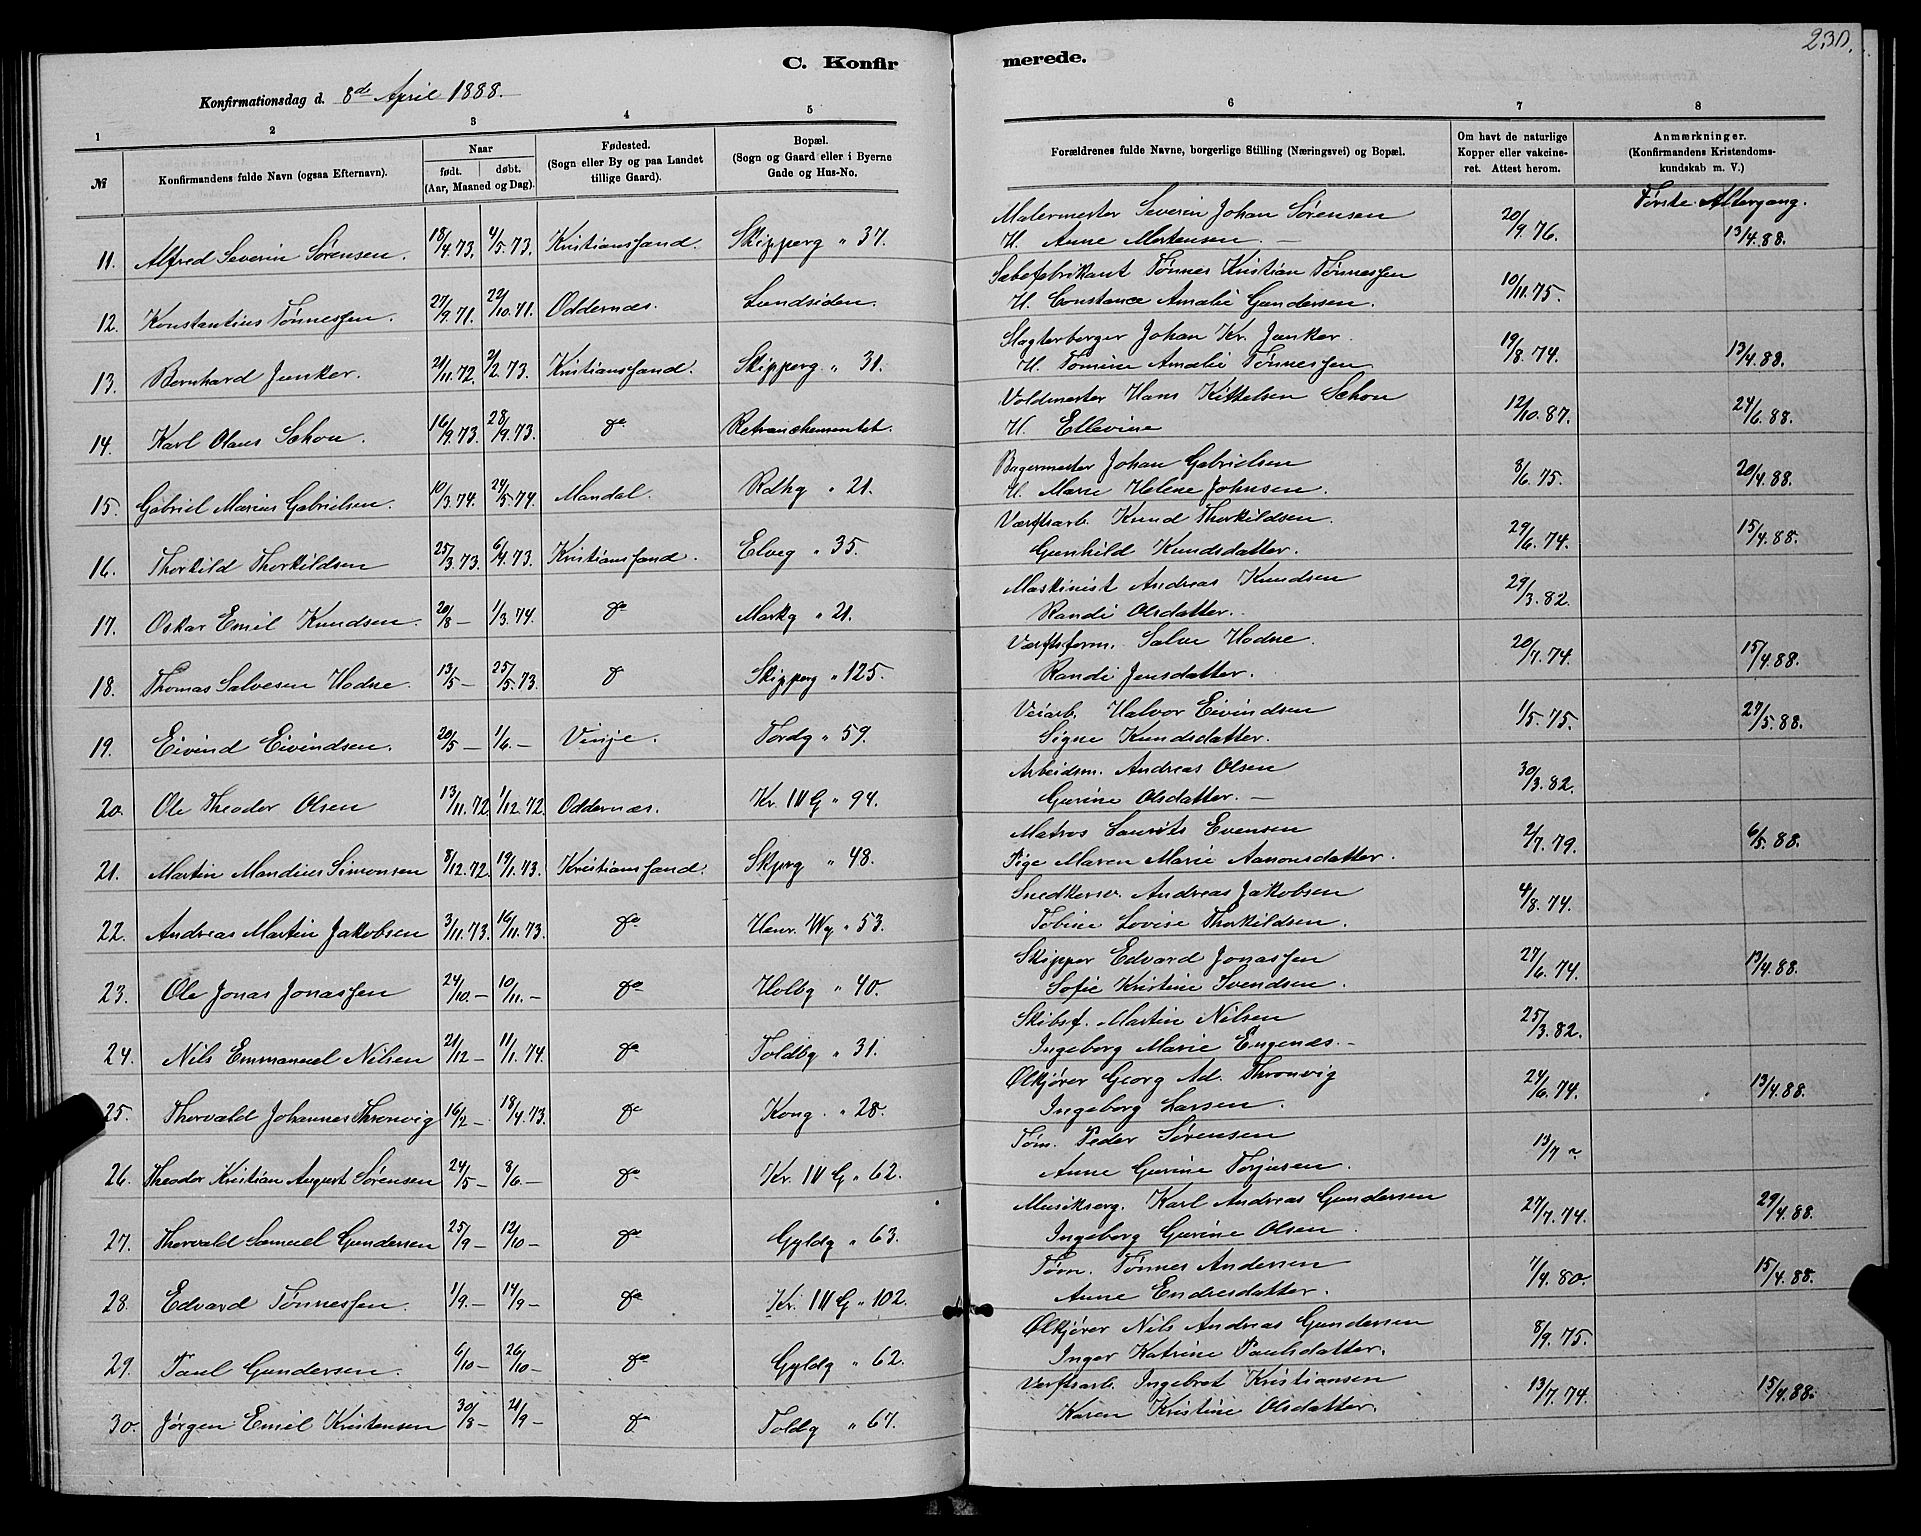 230.
C. Konfirmerede.
Konfirmationsdag d. 8de April 1888.
1 2 3 4 5 6 7 8
№ Konfirmandens fulde Navn (ogsaa Efternavn). Naar født. døbt. (Aar, Maaned og Dag). Fødested. (Sogn eller By og paa Landet tillige Gaard). Bopæl. (Sogn og Gaard eller i Byerne Gade og Hus-No. Forældrenes fulde Navne, borgerlige Stilling (Næringsvei) og Bopæl. Om havt de naturlige Kopper eller vakcineret. Attest herom. Anmærkninger. (Konfirmandens Kristendomskundskab m. V.)
Første Altergang.
11. Alfred Severin Sørensen. 18/4.73. 4/5.73. Kristianssand. Skipperg " 37. Malermester Severin Johan Sørensen 20/9.76. 13/4.88.
H. Anne Mortensen. —
12. Konstantius Tønnessen. 27/9.71. 22/10.71. Oddernæs. Lundsiden. Sæbefabrikant Tønnes Kristian Tønnessen 10/11.75.
H. Constance Amalie Gundersen.
13. Bernhard Junker. 21/11.72. 2/2.73. Kristianssand. Skipperg " 31. Slagterborger Johan Kr. Junker. 19/8.74. 13/4.88.
H. Tomine Amalie Tønnessen
14. Karl Olaus Schou. 16/9.73. 28/9.73. do Retranchementet. Voldmester Hans Kittelsen Schou 12/10.87. 24/6.88.
H. Ellevine
15. Gabriel Marius Gabrielsen. 10/3.74. 24/5.74. Mandal. Rdhg " 21. Bagermester Johan Gabrielsen 8/6.75. 20/4.88.
H. Marie Helene Johnsen.
16. Thorkild Thorkildsen 25/3.73. 6/4.73. Kristianssand. Elveg " 35. Værftsarb. Knud Thorkildsen. 29/6.74. 15/4.88.
Gunhild Knudsdatter.
17. Oskar Emil Knudsen. 20/8 — 1/3.74. do Markg " 21. Maskinist Andreas Knudsen 29/3.82.
Randi Olsdatter.
18. Thomas Salvesen Hodne. 13/5 — 25/5.73. do Skipperg " 125. Værftsform. Salve Hodne. 20/7.74. 15/4.88.
Randi Jensdatter.
19. Eivind Eivindsen. 20/5 — 1/6. — Vinje. Tordg " 59. Veiarb. Halvor Eivindsen 1/5.75. 27/5.88.
Signe Knudsdatter.
20. Ole Theodor Olsen 13/11.72. 1/12.72. Oddernæs. Kr. IV G " 94. Arbeidsm. Andreas Olsen 30/3.82.
Gurine Olsdatter. —
21. Martin Mandius Simonsen 8/12.72. 19/1.73. Kristianssand. Skprg " 48. Matros Laurits Evensen 2/7.79. 6/5.88.
Pige Maren Marie Aanonsdatter.
22. Andreas Martin Jakobsen 3/11.73. 16/11.73. do Henr. Wg " 53. Snedkersv. Andreas Jakobsen 4/8.74.
Tobine Lovise Thorkildsen.
23. Ole Jonas Jonassen 24/10. — 10/11. — do Holbg " 40. Skipper Edvard Jonassen 27/6.74. 13/4.88.
Sofie Kristine Svendsen.
24. Nils Emmanuel Nilsen 21/12 — 11/1.74. do Toldbg " 31. Skibsf. Martin Nilsen 25/3.82.
Ingeborg Marie Engenes. —
25. Thorvald Johannes Thronvig 16/2 — 18/4.73. do Kong. " 28. Ølkjører Georg Ad. Thronvig 24/6.74. 13/4.88.
Ingeborg Larsen.
26. Theodor Kristian August Sørensen 24/5 — 8/6. — do Kr. IV G " 62. Tøm. Peder Sørensen 13/7 "
Anne Gurine Torjusen.
27. Thorvald Samuel Gundersen 25/9 — 12/10 — do Gyldg " 63. Musikserg. Karl Andreas Gundersen 27/7.74. 29/4.88.
Ingeborg Gurine Olsen.
28. Edvard Tønnessen. 1/9. — 14/9 — do Kr. IV G " 102. Tøm. Tønnes Andersen 7/4.80. 15/4.88.
Anne Endresdatter.
29. Paul Gundersen. 6/10 — 26/10 — do Gyldg " 62. Ølkjører Nils Andreas Gundersen 8/9.75.
Inger Katrine Paulsdatter.
30. Jørgen Emil Kristensen 30/8 — 21/9 — do Toldg " 67. Værftsarb. Ingebret Kristiansen 13/7.74. 15/4.88.
Karen Kristine Olsdatter.